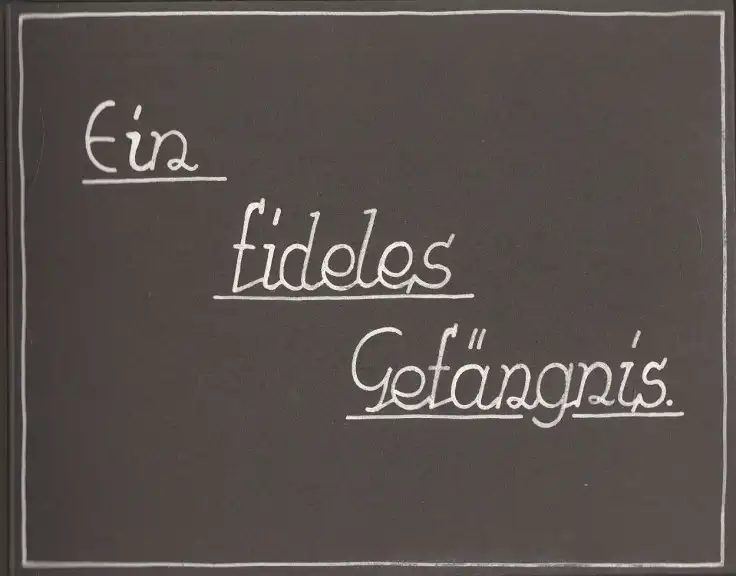 Ein
fideles
Gefängnis.